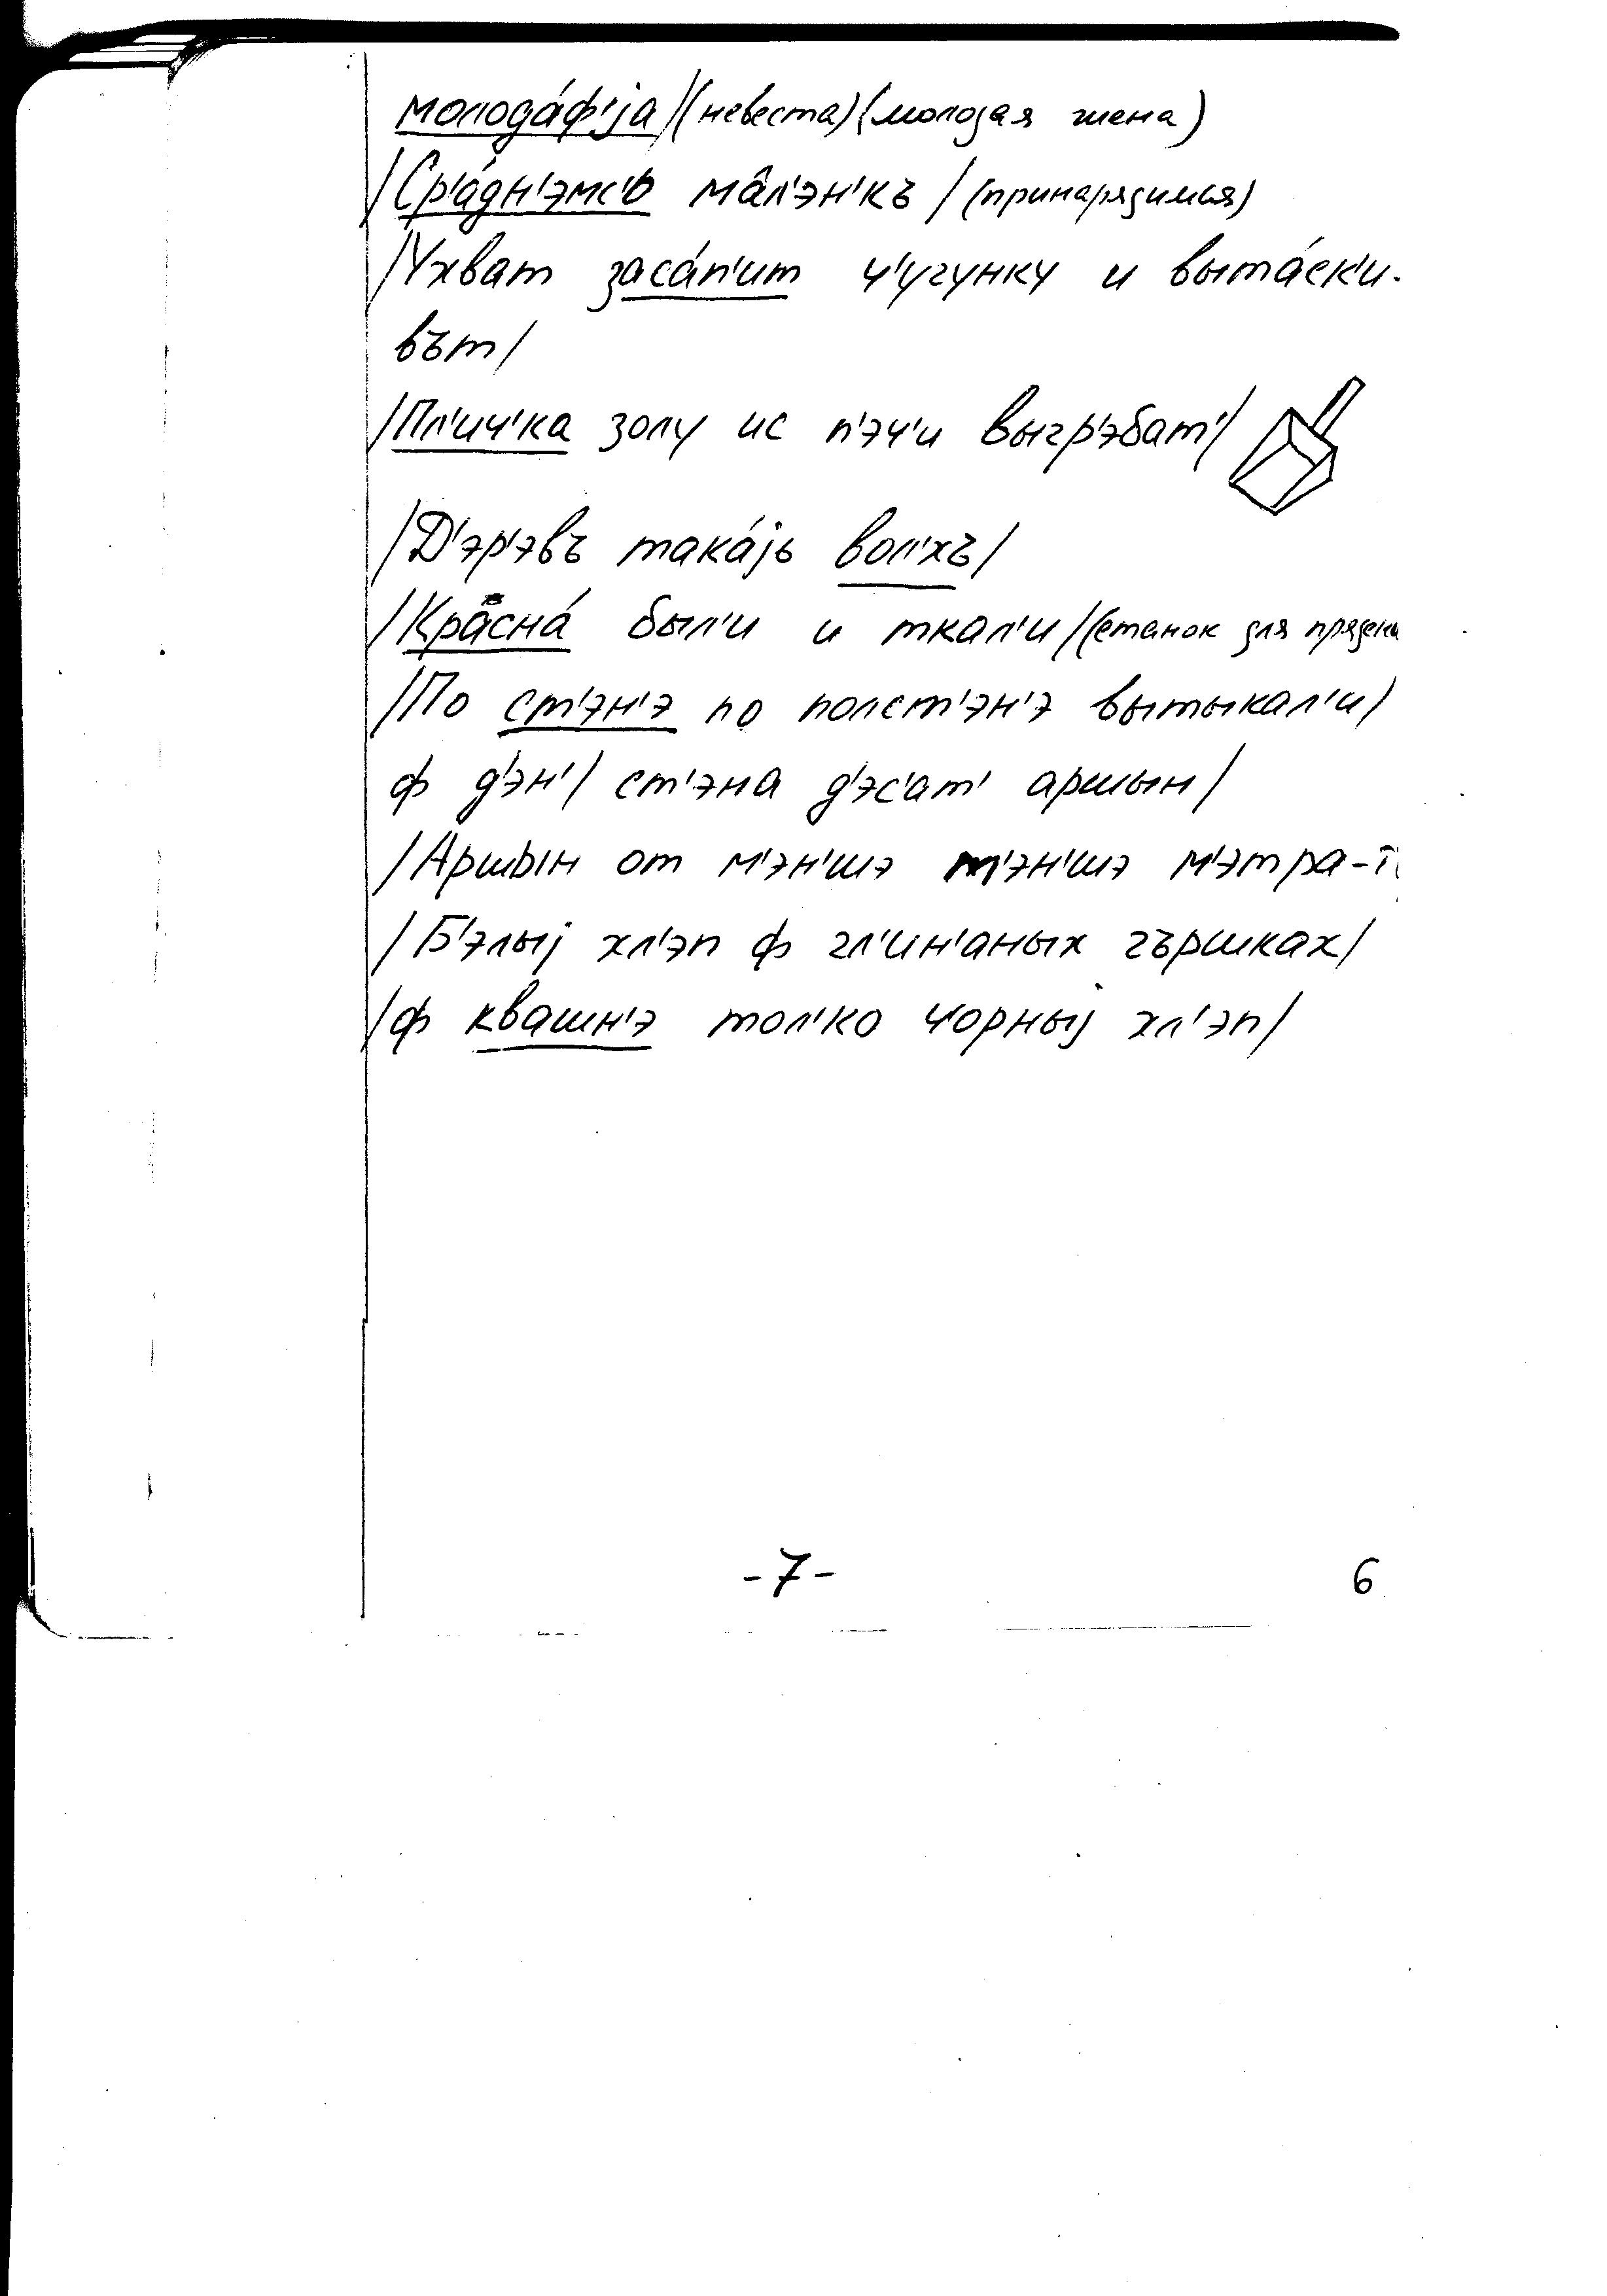 молода́ф'jа/(невеста)(молодая жена)
/Ср'а́дн'эмс'о мâл'эн'къ/(принарядимся)
/Ухват заса́п'ит ч'угунку и выта́ск'и-
вът/
/Пл'ич'ка золу ис п'эч'и выгр'эбат'/
/Д'эр'эвъ така́jь вол'хъ/
/Красна́ был'и и ткал'и/(станок для
/По ст'эн'э по полст'эн'э вытыкал'и/
ф д'эн'/ ст'эна д'эс'ат' аршын/
/Аршын от м'эн'шэ м'эн'шэ м'этра-
/Б'элыj хл'эп ф гл'ин'аных гършках/
/ф квашн'э тол'ко ч'орныj хл'эп/
-7- 6